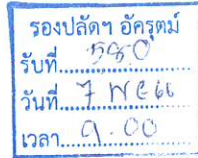 รองปลัดฯ อัครุตม์
รับที่ 580
วันที่ 7 พ.ย. 66
เวลา 9.00